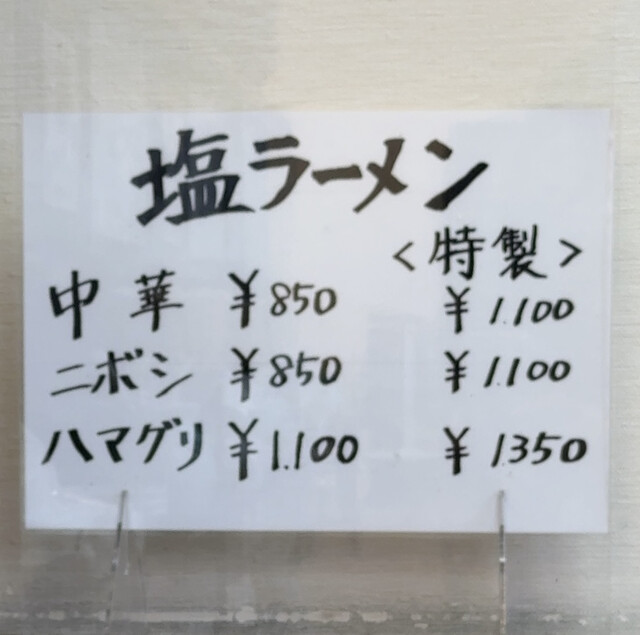 塩ラーメン
<特製>
中華 ¥850 ¥1.100
ニボシ ¥850 ¥1.100
ハマグリ ¥1.100 ¥1350